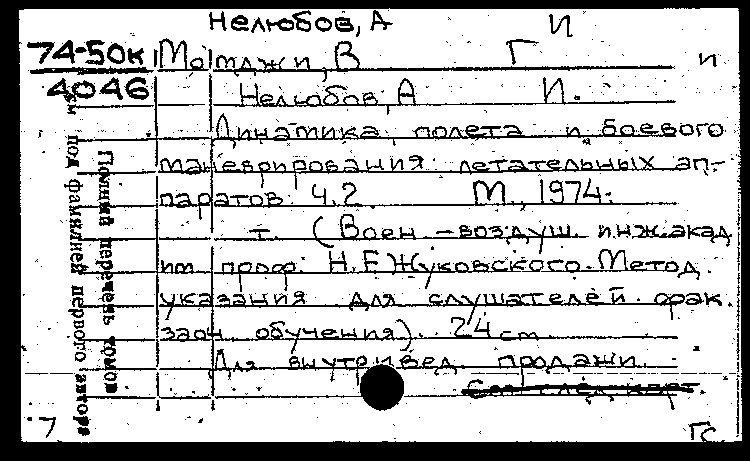 Нелюбов, А И
74-50к Мотжи, В Г и
4046 Нелюбов, А И.
Динамика полета и боевого
маневрирования летательных ап-
паратов Ч.2 М., 1974.
т. (Воен.-воздуш. инж. акад
им проф. Н.Е Жуковского. Метод.
указания для слушателей фак.
заоч обучения). 24 см
Для внутривед. продажи
См. след. карт.
7 ГС
Полный перечень томов
см под фамилией первого автора